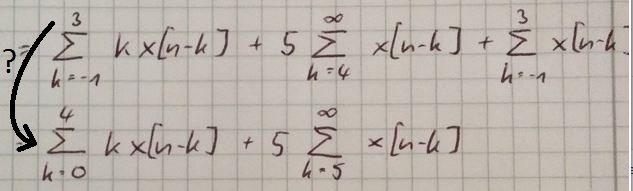 ? = \sum_{k=-1}^{3} k x[n-k] + 5 \sum_{k=4}^{\infty} x[n-k] + \sum_{k=-1}^{3} x[n-k
\sum_{k=0}^{4} k x[n-k] + 5 \sum_{k=5}^{\infty} x[n-k]